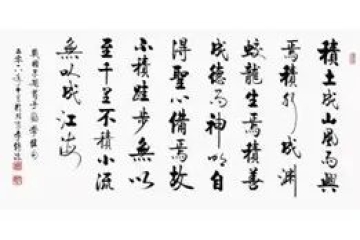 積土成山風雨興
焉積水成渊
蛟龍生焉積善
成德而神明自
得聖心備焉故
不積跬步無以
至千里不積小流
無以成江海